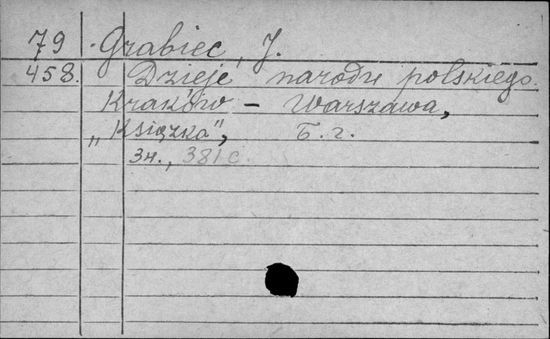 79 Grabiec, J.
458. Dzieje narodu polskiego.
Kraków – Warszawa,
„Książka”, Б. г.
3н., 381 с.